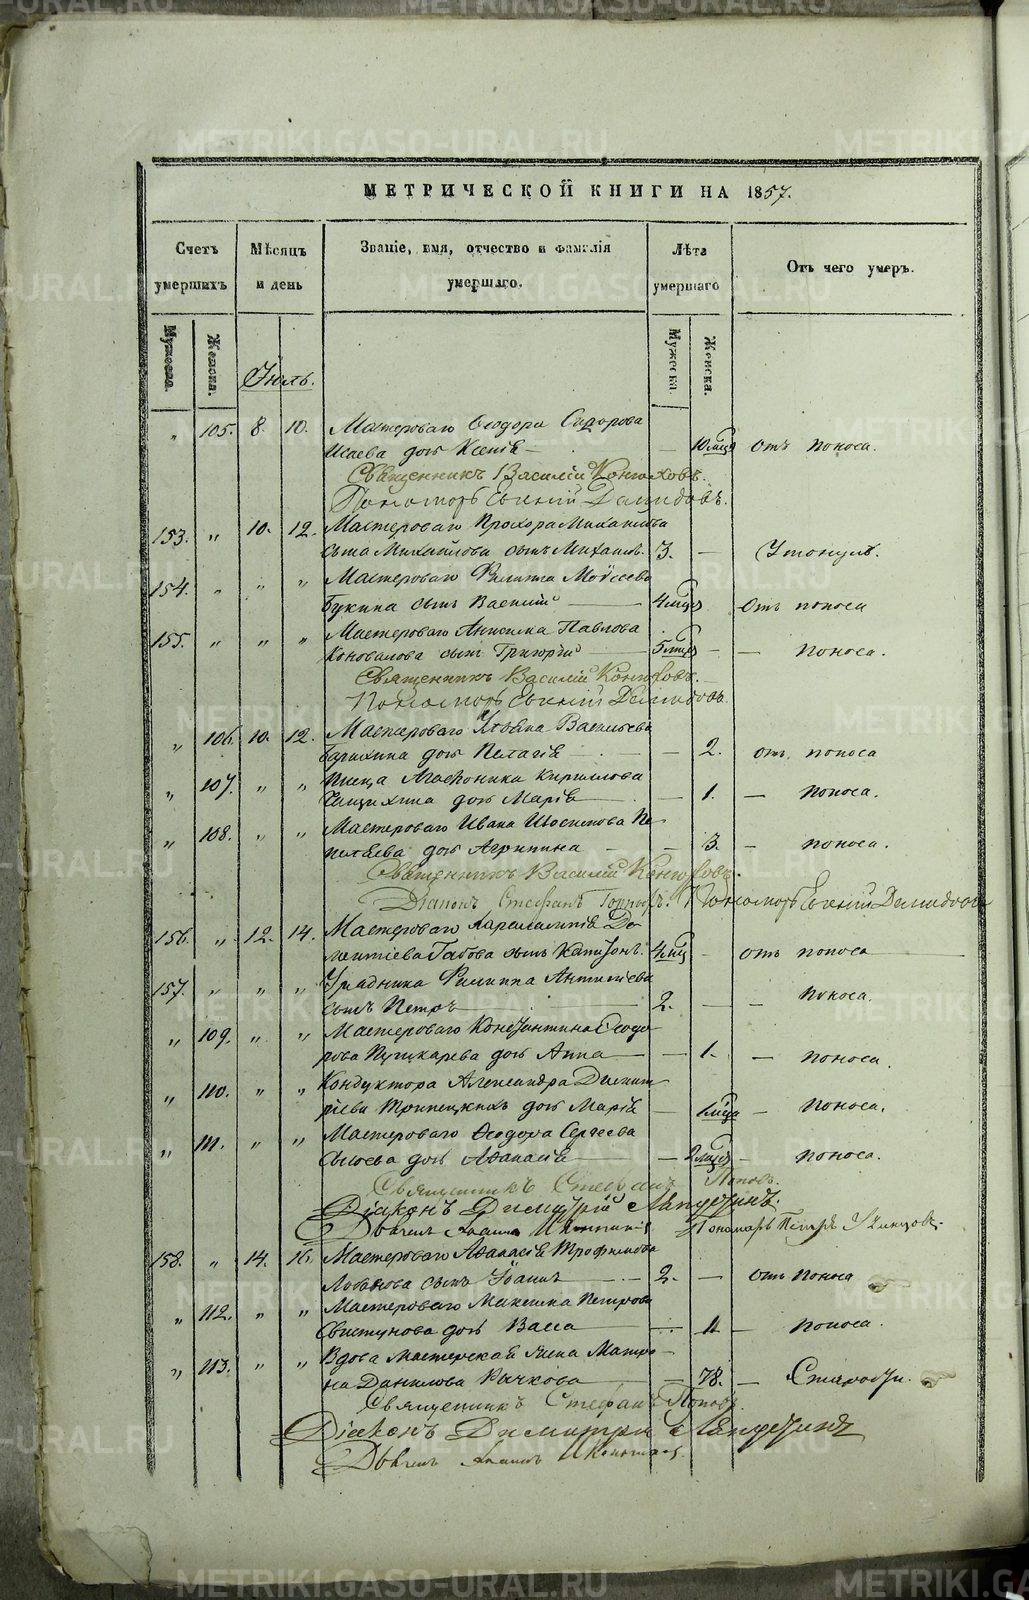 МЕТРИЧЕСКОЙ КНИГИ НА 1857.
Счетъ умершихъ
Мѣсяцъ и день
Званіе, имя, отчество и фамилія умершаго.
Лѣта умершаго
Отъ чего умеръ.
Мужеска. Женска.
Мужеска. Женска.
Іюль.
" 105. 8. 10. Мастероваго Ѳеодора Сидорова
Исаева дочь Ксенія — 10 мѣся отъ поноса.
Священникъ Василій Конюховъ.
Пономарь Евгеній Демидовъ.
153. " 10. 12. Мастероваго Прохора Михайлова
сына Михайлова сынъ Михаилъ. 3. — Утонулъ.
154. " " " Мастероваго Филиппа Моисеева
Букина сынъ Василій — 4 мѣся отъ поноса
155. " " " Мастероваго Анисима Павлова
Коновалова сынъ Григорій — 5 мѣся — — поноса.
Священникъ Василій Конюховъ.
Пономарь Евгеній Демидовъ.
" 106. 10. 12. Мастероваго Ульяна Васильева
дочь Пелагія — 2. отъ поноса
" 107. " " Писца Агафоника Кириллова
дочь Марія — 1. — поноса.
" 108. " " Мастероваго Ивана Иосифова Пе-
пелаева дочь Агрипина — 3. — поноса.
Священникъ Василій Конюховъ.
Діаконъ Стефанъ Пономарь Евгеній Демидовъ
156. " 12. 14. Мастероваго Харлампія До-
ментіева Габова сынъ Капитонъ. 4 мѣц — отъ поноса
157. " " " Урядника Филиппа Антипіева
сынъ Петръ — 2. — — поноса.
" 109. " " Мастероваго Константина Ѳеодо-
рова Пушкарева дочь Анна — 1. — поноса.
" 110. " " Кондуктора Александра Димит-
ріева дочь Марія — 1 мѣся — поноса.
" 111. " " Мастероваго Ѳеодора Сергеева
Сысоева дочь Афанасія — 2 мѣся — поноса.
Священникъ Стефанъ Поповъ.
Діаконъ Димитрій
Дьячекъ Пономарь Петръ
158. " 14. 16. Мастероваго Афанасія Трофимова
Лобанова сынъ Іоаннъ — 2. — отъ поноса
" 112. " " Мастероваго Максима Петрова
Свистунова дочь Васса — 11 — поноса.
" 113. " " Вдова мастерская жена Матро-
на Данилова Рычкова — 78. — Старости.
Священникъ Стефанъ Поповъ.
Діаконъ Димитрій
Дьячекъ
METRIKI.GASO-URAL.RU